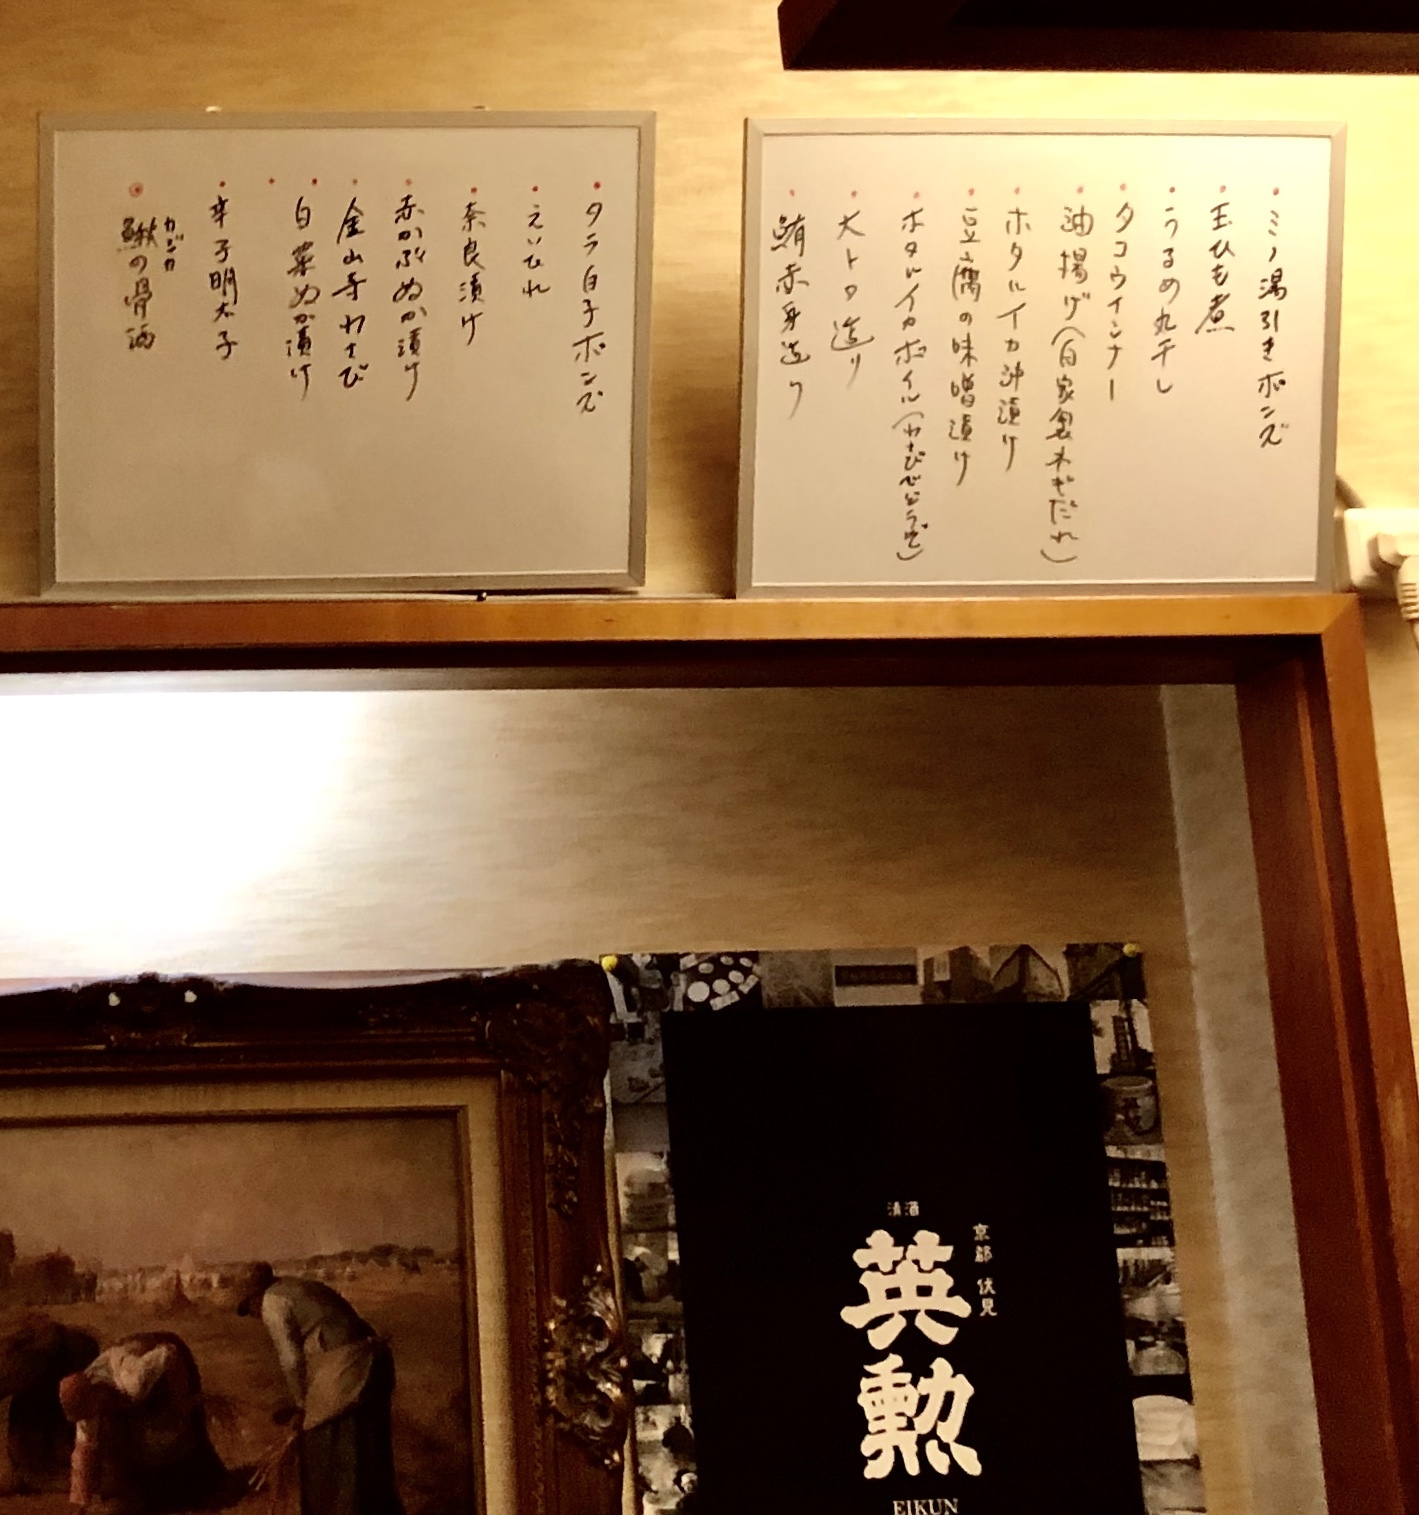 ミノ湯引きポンズ
玉ひも煮
うるめ丸干し
タコウインナー
油揚げ(自家製ネギだれ)
ホタルイカ沖漬け
豆腐の味噌漬け
ホタルイカボイル(わさびでどうぞ)
大トロ造り
鮪赤身造り
タラ白子ポンズ
えいひれ
奈良漬け
赤かぶぬか漬け
金山寺わさび
白菜ぬか漬け
辛子明太子
カジカ
鰍の骨酒
清酒
京都 伏見
英勲
EIKUN